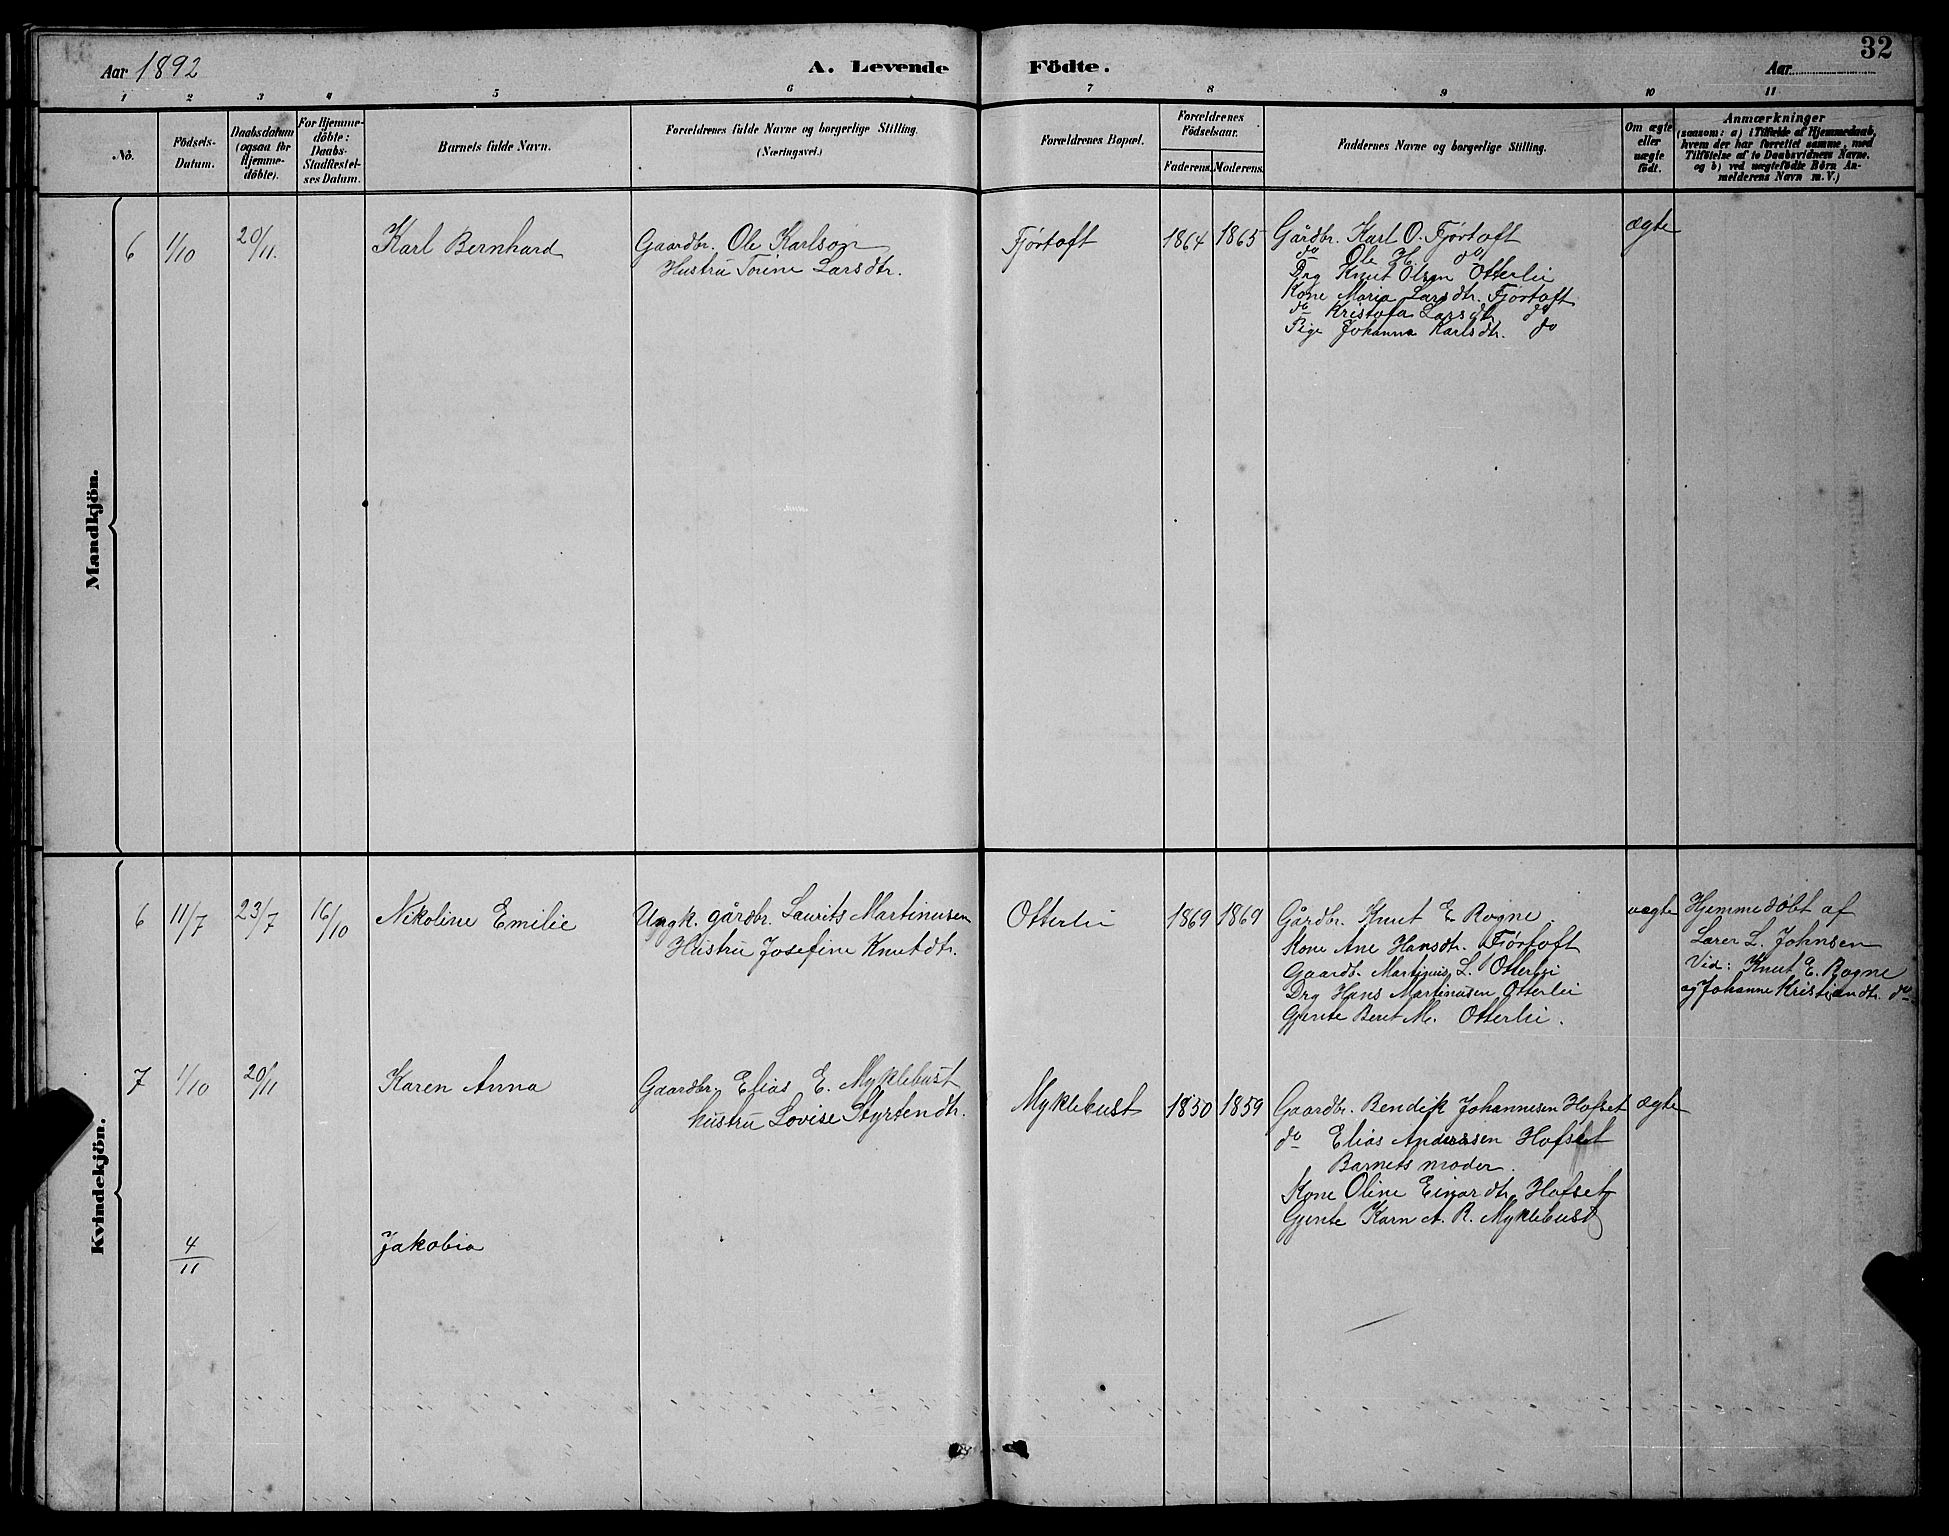 32
Aar 1892 A. Levende Födte. Aar
1 2 3 4 5 6 7 8 9 10 11
No. Födsels-Datum. Daabsdatum (ogsaa for Hjemme-döbte). For Hjemme-döbte: Daabs-Stadfæstel-ses Datum. Barnets fulde Navn. Forældrenes fulde Navne og borgerlige Stilling. (Næringsvei.) Forældrenes Bopæl. Forældrenes Födselsaar. Faderens. Moderens. Faddernes Navne og borgerlige Stilling. Om ægte eller uægte födt. Anmærkninger (saasom: a) i Tilfælde af Hjemmedaab, hvem der har forrettet samme, med Tilföielse af to Daabsvidners Navne, og b) ved uægtefödte Börn An-melderens Navn m. V.)
Mandkjön.
6 1/10 20/11. Karl Bernhard Gaardbr. Ole Karlson Fjørtoft 1864 1865 Gårdbr. Karl O. Fjørtoft ægte
Hustru Torine Larsdtr. do Ole H. do
Drg Knut Olsen Otterlei
Kone Maria Larsdtr. Fjørtoft
do Kristofa Larsdtr do
Pige Johanna Karlsdtr. do
Kvindekjön.
6 11/7 23/7 16/10 Nikoline Emilie Ungk. gårdbr. Laurits Martinusen Otterlei 1869 1869 Gårdbr. Knut E. Rogne. uægte Hjemmedøbt af
Hustru Josefine Knutdtr. Kone Ane Hansdtr. Fjørtoft Lærer L. Johnsen
Gaardb. Martinus L. Otterlei Vid: Knut E. Rogne
Drg Hans Martinusen Otterlei og Johanne Kristiandtr. do
Gjente Beret M. Otterlei.
7 1/10 20/11 Karen Anna Gaardbr. Elias E. Myklebust Myklebust 1850 1859 Gaardbr. Bendik Johannesen Hofset ægte
hustru Lovise Styrkendtr. do Elias Anderssen Hofset
Barnets moder.
Kone Oline Einardtr. Hofset
Gjente Karn A. R. Myklebust
4/11 Jakobia